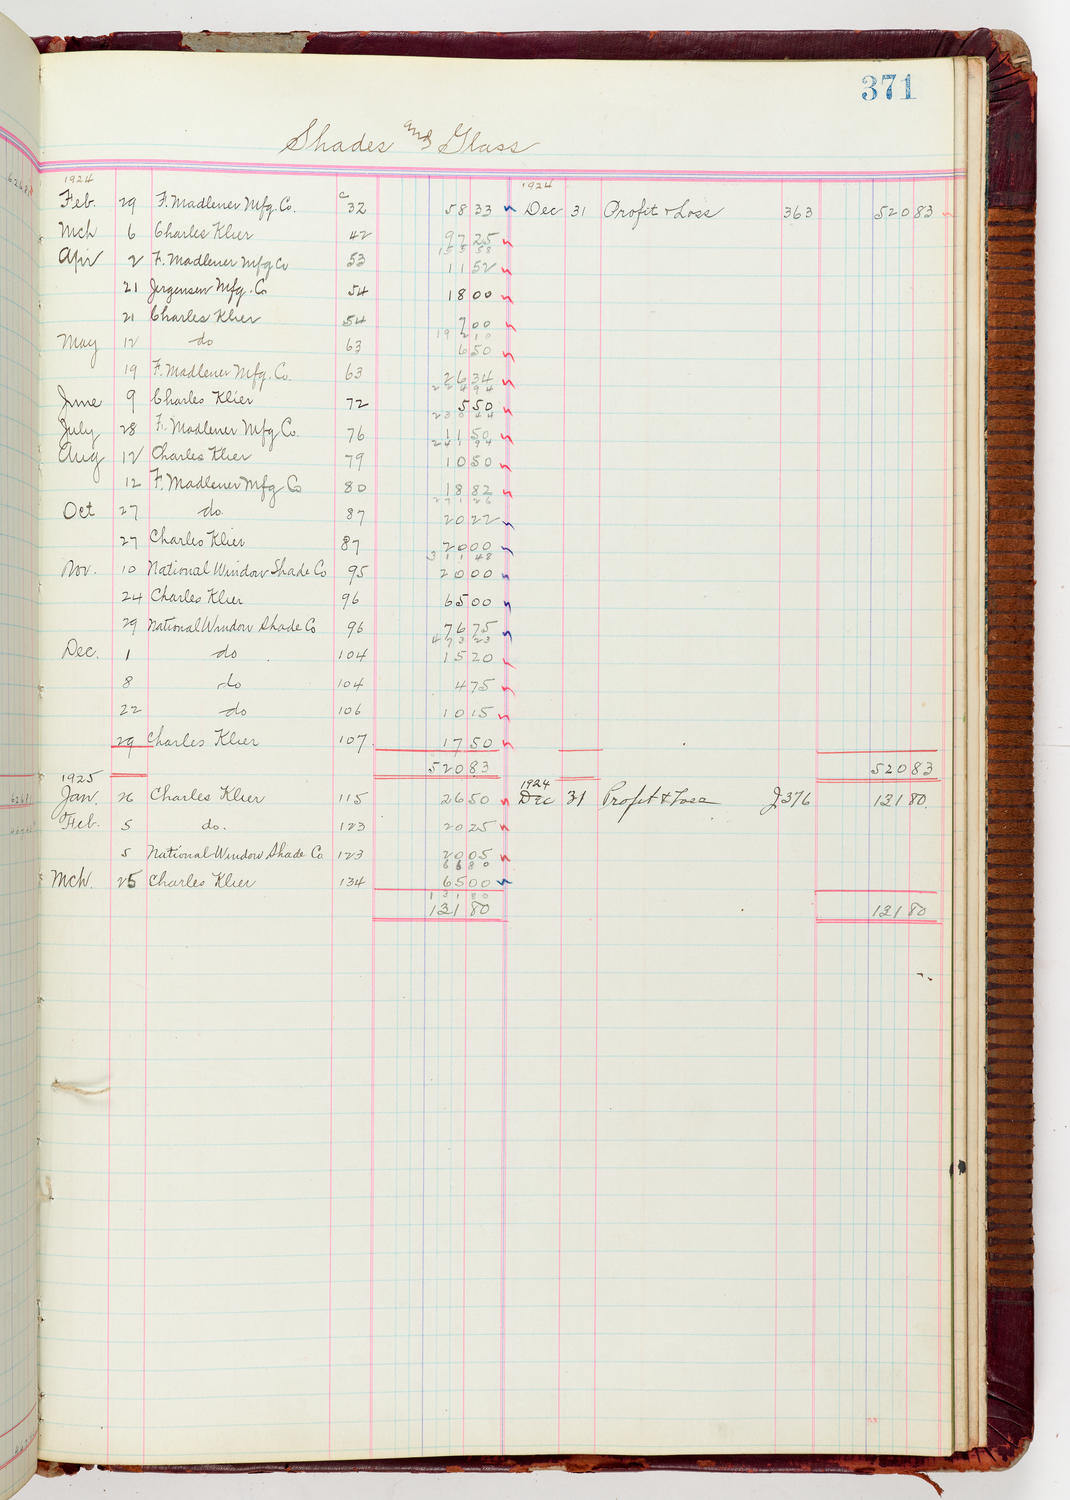 371
Shades and Glass
1924 1924
Feb. 29 F. Madlener Mfg. Co. c 32 58 33 Dec 31 Profit & Loss 363 520 83
Mch 6 Charles Klier 42 97 25
155 58
Apr 2 F. Madlener Mfg Co 53 11 52
21 Jergensen Mfg. Co 54 18 00
21 Charles Klier 54 7 00
192 10
May 12 do 63 6 50
19 F. Madlener Mfg. Co. 63 26 34
224 94
June 9 Charles Klier 72 5 50
230 44
July 28 F. Madlener Mfg Co. 76 11 50
241 94
Aug 12 Charles Klier 79 10 50
12 F. Madlener Mfg Co 80 18 82
271 26
Oct 27 do. 87 20 22
27 Charles Klier 87 20 00
311 48
Nov. 10 National Window Shade Co 95 20 00
24 Charles Klier 96 65 00
29 National Window Shade Co 96 76 75
473 23
Dec. 1 do 104 15 20
8 do 104 4 75
22 do 106 10 15
29 Charles Klier 107. 17 50
520 83 520 83
1925 1924
Jan. 26 Charles Klier 115 26 50 Dec 31 Profit & Loss J376 131 80
Feb. 5 do. 123 20 25
5 National Window Shade Co 123 20 05
66 80
Mch. 25 Charles Klier 134 65 00
131 80
131 80 131 80